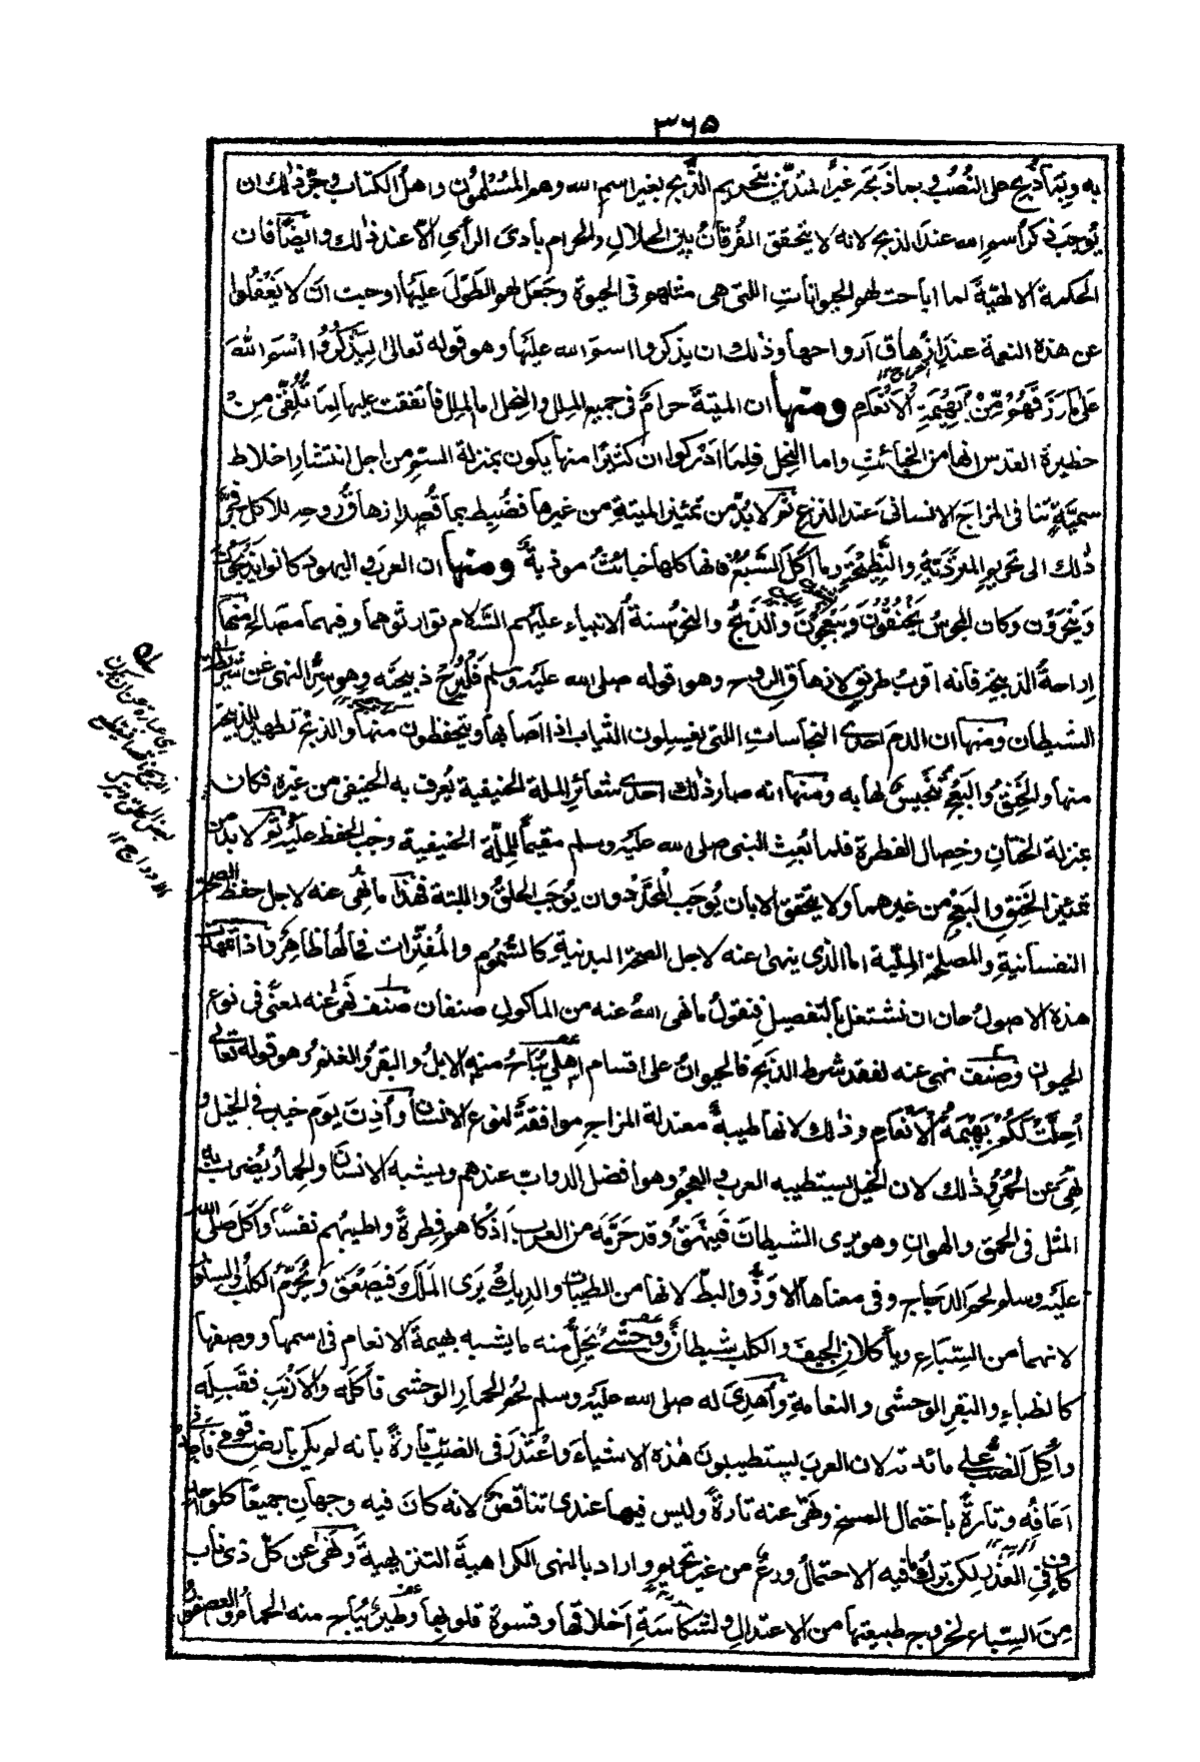 ۳۶۵
به وبما ذبح على النصب وبما ذبحه غير المتدين بتحريم الذبح بغير اسم الله وهم المسلمون واهل الكتاب وجر ذلك ان
يوجب ذكر اسم الله عند الذبح لانه لا يتحقق الفرقان بين الحلال والحرام بادى الرأى الا عند ذلك وايضا فان
الحكمة الالهية لما اباحت لهم الحيوانات اللتى هى مثلهم فى الحيوة وجعل لهم الطول عليها اوجبت ان لا يغفلوا
عن هذه النعمة عند ازهاق ارواحها وذلك ان يذكروا اسم الله عليها وهو قوله تعالى ليذكروا اسم الله
على ما رزقهم من بهيمة الانعام ومنها ان الميتة حرام فى جميع الملل والنحل اما الملل فاتفقت عليها لما تلقى من
حظيرة القدس انها من الخبائث واما النحل فلما ادركوا ان كثيرا منها يكون بمنزلة السم من اجل انتشار اخلاط
سمية تنافى المزاج الانسانى عند النزع ثم لا بد من تمييز الميتة من غيرها فضبط بما قصد ازهاق روحه للاكل فجر
ذلك الى تحريم المتردية والنطيحة وما اكل السبع فانها كلها خبائث موذية ومنها ان العرب واليهود كانوا يذبحون
وينحرون وكان المجوس يخنقون ويبعجون والذبح والنحر سنة الانبياء عليهم السلام توارثوهما وفيهما مصالح منها
اراحة الذبيحة فانه اقرب طريق لازهاق الروح وهو قوله صلى الله عليه وسلم فليرح ذبيحته وهو سر النهى عن شريطة
الشيطان ومنها ان الدم احدى النجاسات اللتى يغسلون الثياب اذا اصابها ويتحفظون منها والذبح تطهير للذبيحة
منها والخنق والبعج تنجيس لها به ومنها انه صار ذلك احدى شعائر الملة الحنيفية يعرف به الحنيفى من غيره فكان
بمنزلة الختان وخصال الفطرة فلما بعث النبى صلى الله عليه وسلم مقيما للملة الحنيفية وجب الحفظ عليه ثم لا بد من
تمييز الخنق والبعج من غيرهما ولا يتحقق الا بان يوجب المحدد وان يوجب الحلق واللبة فهذا ما نهى عنه لاجل حفظ الصحة
النفسانية والمصلحة الملية اما الذى ينهى عنه لاجل الصحة البدنية كالسموم والمفترات فحالها ظاهر واذا تمهدت
هذه الاصول حان ان نشتغل بالتفصيل فنقول ما نهى الله عنه من الماكول صنفان صنف نهى عنه لمعنى فى نوع
الحيوان وصنف نهى عنه لفقد شرط الذبح فالحيوان على اقسام اهلى يباح منه الابل والبقر والغنم وهو قوله تعالى
احلت لكم بهيمة الانعام وذلك لانها طيبة معتدلة المزاج موافقة لنوع الانسان واذن يوم خيبر فى الخيل و
نهى عن الحمر وذلك لان الخيل يستطيبه العرب والعجم وهو افضل الدواب عندهم ويشبه الانسان والحمار يضرب به
المثل فى الحمق والهوان وهو يرى الشيطان فينهق وقد حرمه من العرب اذكاهم فطرة واطيبهم نفسا واكل صلى الله
عليه وسلم لحم الدجاج وفى معناها الاوز والبط لانها من الطيبات والديك يرى الملك فيصعق ويحرم الكلب والسنور
لانهما من السباع وياكلان الجيف والكلب شيطان ووحشى يحل منه ما يشبه بهيمة الانعام فى اسمها ووصفها
كالظباء والبقر الوحشى والنعامة واهدى له صلى الله عليه وسلم لحم الحمار الوحشى فاكله والارنب فقبله
واكل الضب على مائدته لان العرب يستطيبون هذه الاشياء واعتذر فى الضب تارة بانه لم يكن بارض قومى فاجدنى
اعافه وتارة باحتمال المسخ ونهى عنه تارة وليس فيها عندى تناقض لانه كان فيه وجهان جميعا كل واحد
كاف فى العذر لكن ترك ما فيه الاحتمال ورع من غير تحريم واراد بالنهى الكراهية التنزيهية ونهى عن كل ذى ناب
من السباع لخروج طبيعتها من الاعتدال ولشكاسة اخلاقها وقسوة قلوبها وطير يباح منه الحمام والعصفور